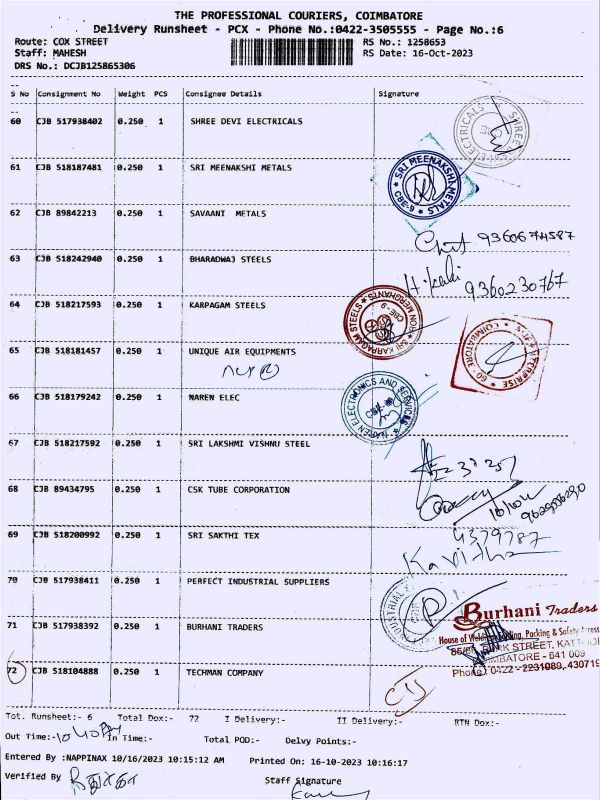 THE PROFESSIONAL COURIERS, COIMBATORE
Delivery Runsheet - PCX - Phone No.:0422-3505555 - Page No.:6
Route: COX STREET RS No.: 1258653
Staff: MAHESH RS Date: 16-Oct-2023
DRS No.: DCJB125865306
S No Consignment No Weight PCS Consignee Details Signature
60 CJB 517938402 0.250 1 SHREE DEVI ELECTRICALS
61 CJB 518187481 0.250 1 SRI MEENAKSHI METALS
SRI MEENAKSHI METALS CBE-9
62 CJB 89842213 0.250 1 SAVAANI METALS
63 CJB 518242940 0.250 1 BHARADWAJ STEELS
9360230767
64 CJB 518217593 0.250 1 KARPAGAM STEELS
SRI KARPAGAM STEELS
65 CJB 518181457 0.250 1 UNIQUE AIR EQUIPMENTS
66 CJB 518179242 0.250 1 NAREN ELEC
NAREN ELECTRONICS AND SERVICES
67 CJB 518217592 0.250 1 SRI LAKSHMI VISHNU STEEL
68 CJB 89434795 0.250 1 CSK TUBE CORPORATION
69 CJB 518200992 0.250 1 SRI SAKTHI TEX
Kavitha
70 CJB 517938411 0.250 1 PERFECT INDUSTRIAL SUPPLIERS
71 CJB 517938392 0.250 1 BURHANI TRADERS
Burhani Traders
House of Packing & Safety
STREET,
COIMBATORE - 641 009
Phone: 0422 - 2231089, 430719
72 CJB 518104888 0.250 1 TECHMAN COMPANY
Tot. Runsheet:- 6 Total Dox:- 72 I Delivery:- II Delivery:- RTN Dox:-
Out Time:- In Time:- Total POD:- Delvy Points:-
Entered By :NAPPINAX 10/16/2023 10:15:12 AM Printed On: 16-10-2023 10:16:17
Verified By Staff Signature